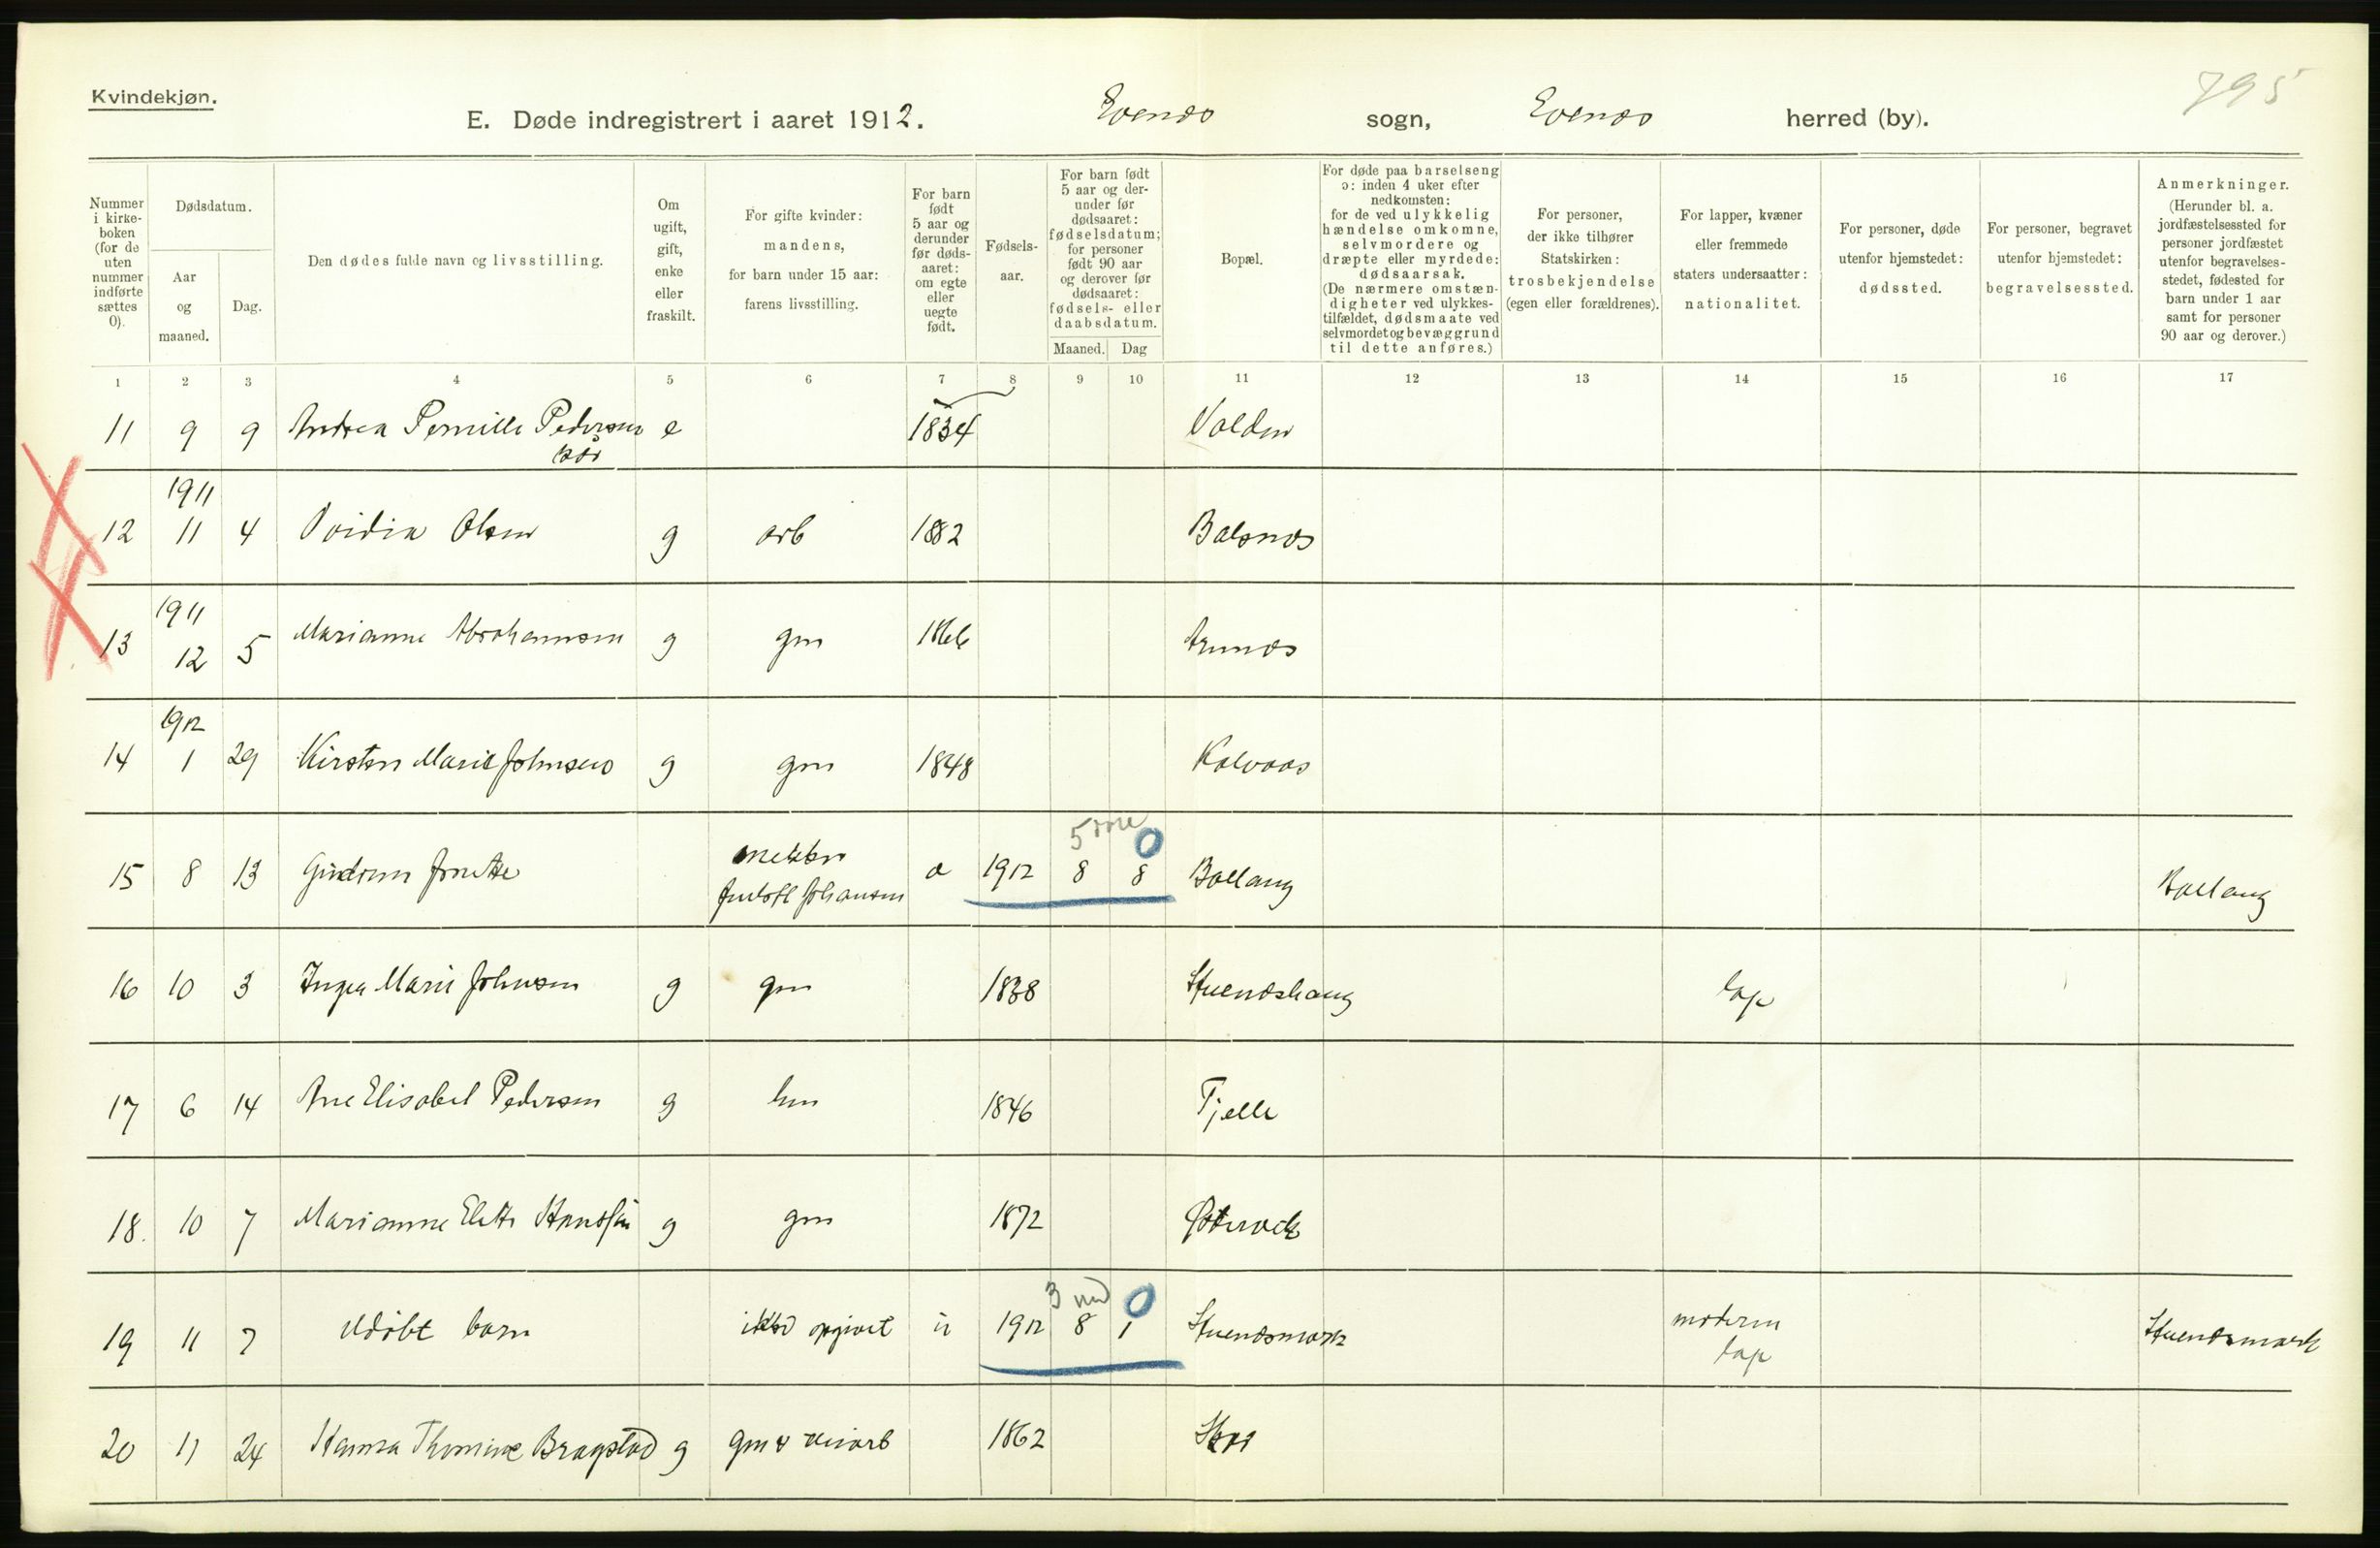 Kvindekjøn.
795
E. Døde indregistrert i aaret 1912. Evenes sogn, Evenes herred (by).
Nummer i kirke- boken (for de uten nummer indførte sættes 0).
Dødsdatum.
Aar og maaned.
Dag.
Den dødes fulde navn og livsstilling.
Om ugift, gift, enke eller fraskilt.
For gifte kvinder: mandens, for barn under 15 aar: farens livsstilling.
For barn født 5 aar og derunder før døds- aaret: om egte eller uegte født.
Fødsels- aar.
For barn født 5 aar og der- under før dødsaaret: fødselsdatum; for personer født 90 aar og derover før dødsaaret: fødsels- eller daabsdatum.
Maaned. Dag
Bopæl.
For døde paa barselseng ɔ: inden 4 uker efter nedkomsten: for de ved ulykkelig hændelse omkomne, selvmordere og dræpte eller myrdede: dødsaarsak. (De nærmere omstæn- digheter ved ulykkes- tilfældet, dødsmaate ved selvmordet og bevæggrund til dette anføres.)
For personer, der ikke tilhører Statskirken: trosbekjendelse (egen eller forældrenes).
For lapper, kvæner eller fremmede staters undersaatter: nationalitet.
For personer, døde utenfor hjemstedet: dødssted.
For personer, begravet utenfor hjemstedet: begravelsessted.
Anmerkninger. (Herunder bl. a. jordfæstelsessted for personer jordfæstet utenfor begravelses- stedet, fødested for barn under 1 aar samt for personer 90 aar og derover.)
1 2 3 4 5 6 7 8 9 10 11 12 13 14 15 16 17
11 9 9 Andrea Pernille Pedersen e 1834 Volden
kår
1911
12 11 4 Olsen g arb 1882 Balsnes
1911
13 12 5 Marianne Abrahamsen g gm 1866
1912
14 1 29 Kirsten Marie Johnsen g gm 1848 Kalvaas
5 0
15 8 13 Gudrun Jonette Johansen 1912 8 8 Ballang Ballang
16 10 3 Inga Marie Johnsen g gm 1838 Stuenæshaug lap
17 6 14 Ane Elisabet Pedersen g hm 1846 Tjelle
18. 10 7 Marianne g gm 1872 Østervik
3 md 0
19 11 7 udøbt barn ikke opgivet u 1912 8 1 Stuenæsmark moderen lap Stuenæsmark
20 11 24 Hansa Thomine Bragstad g gm & veiarb 1862